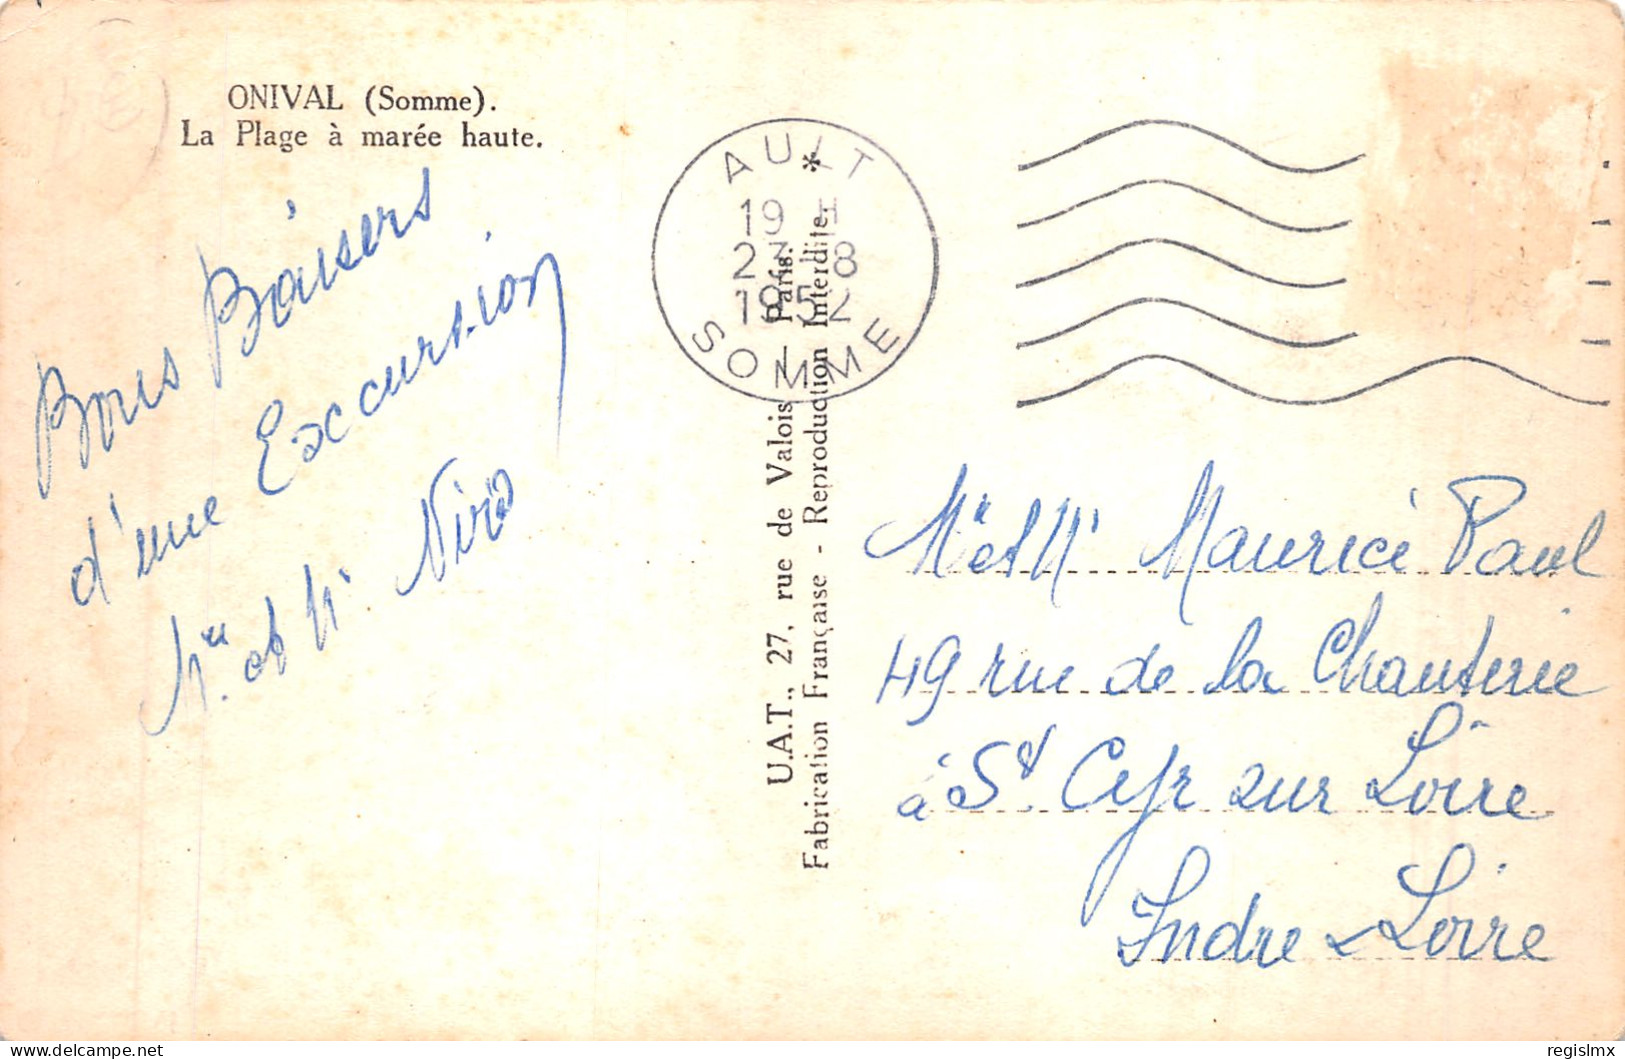 ONIVAL (Somme).
La Plage à marée haute.
Bons Baisers
d'une Excursion
Mme et Mr
AULT
19 H
23 - 8
1952
SOMME
U.A.T., 27, rue de Valois, Paris.
Fabrication Française - Reproduction Interdite. *
Mme et Mr Maurice Paul
49 rue de la Chanterie
à St Cyr sur Loire
Indre & Loire
delcampe.net
regislmx